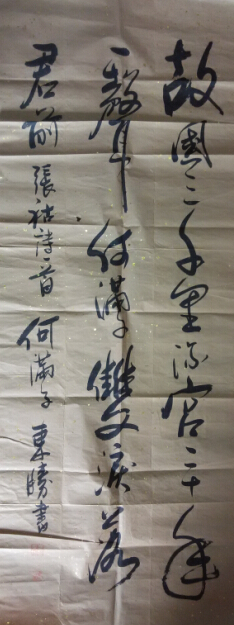 故國三千里深宮二十年
一聲何滿子雙淚落
君前張祜詩一首何滿子東勝書